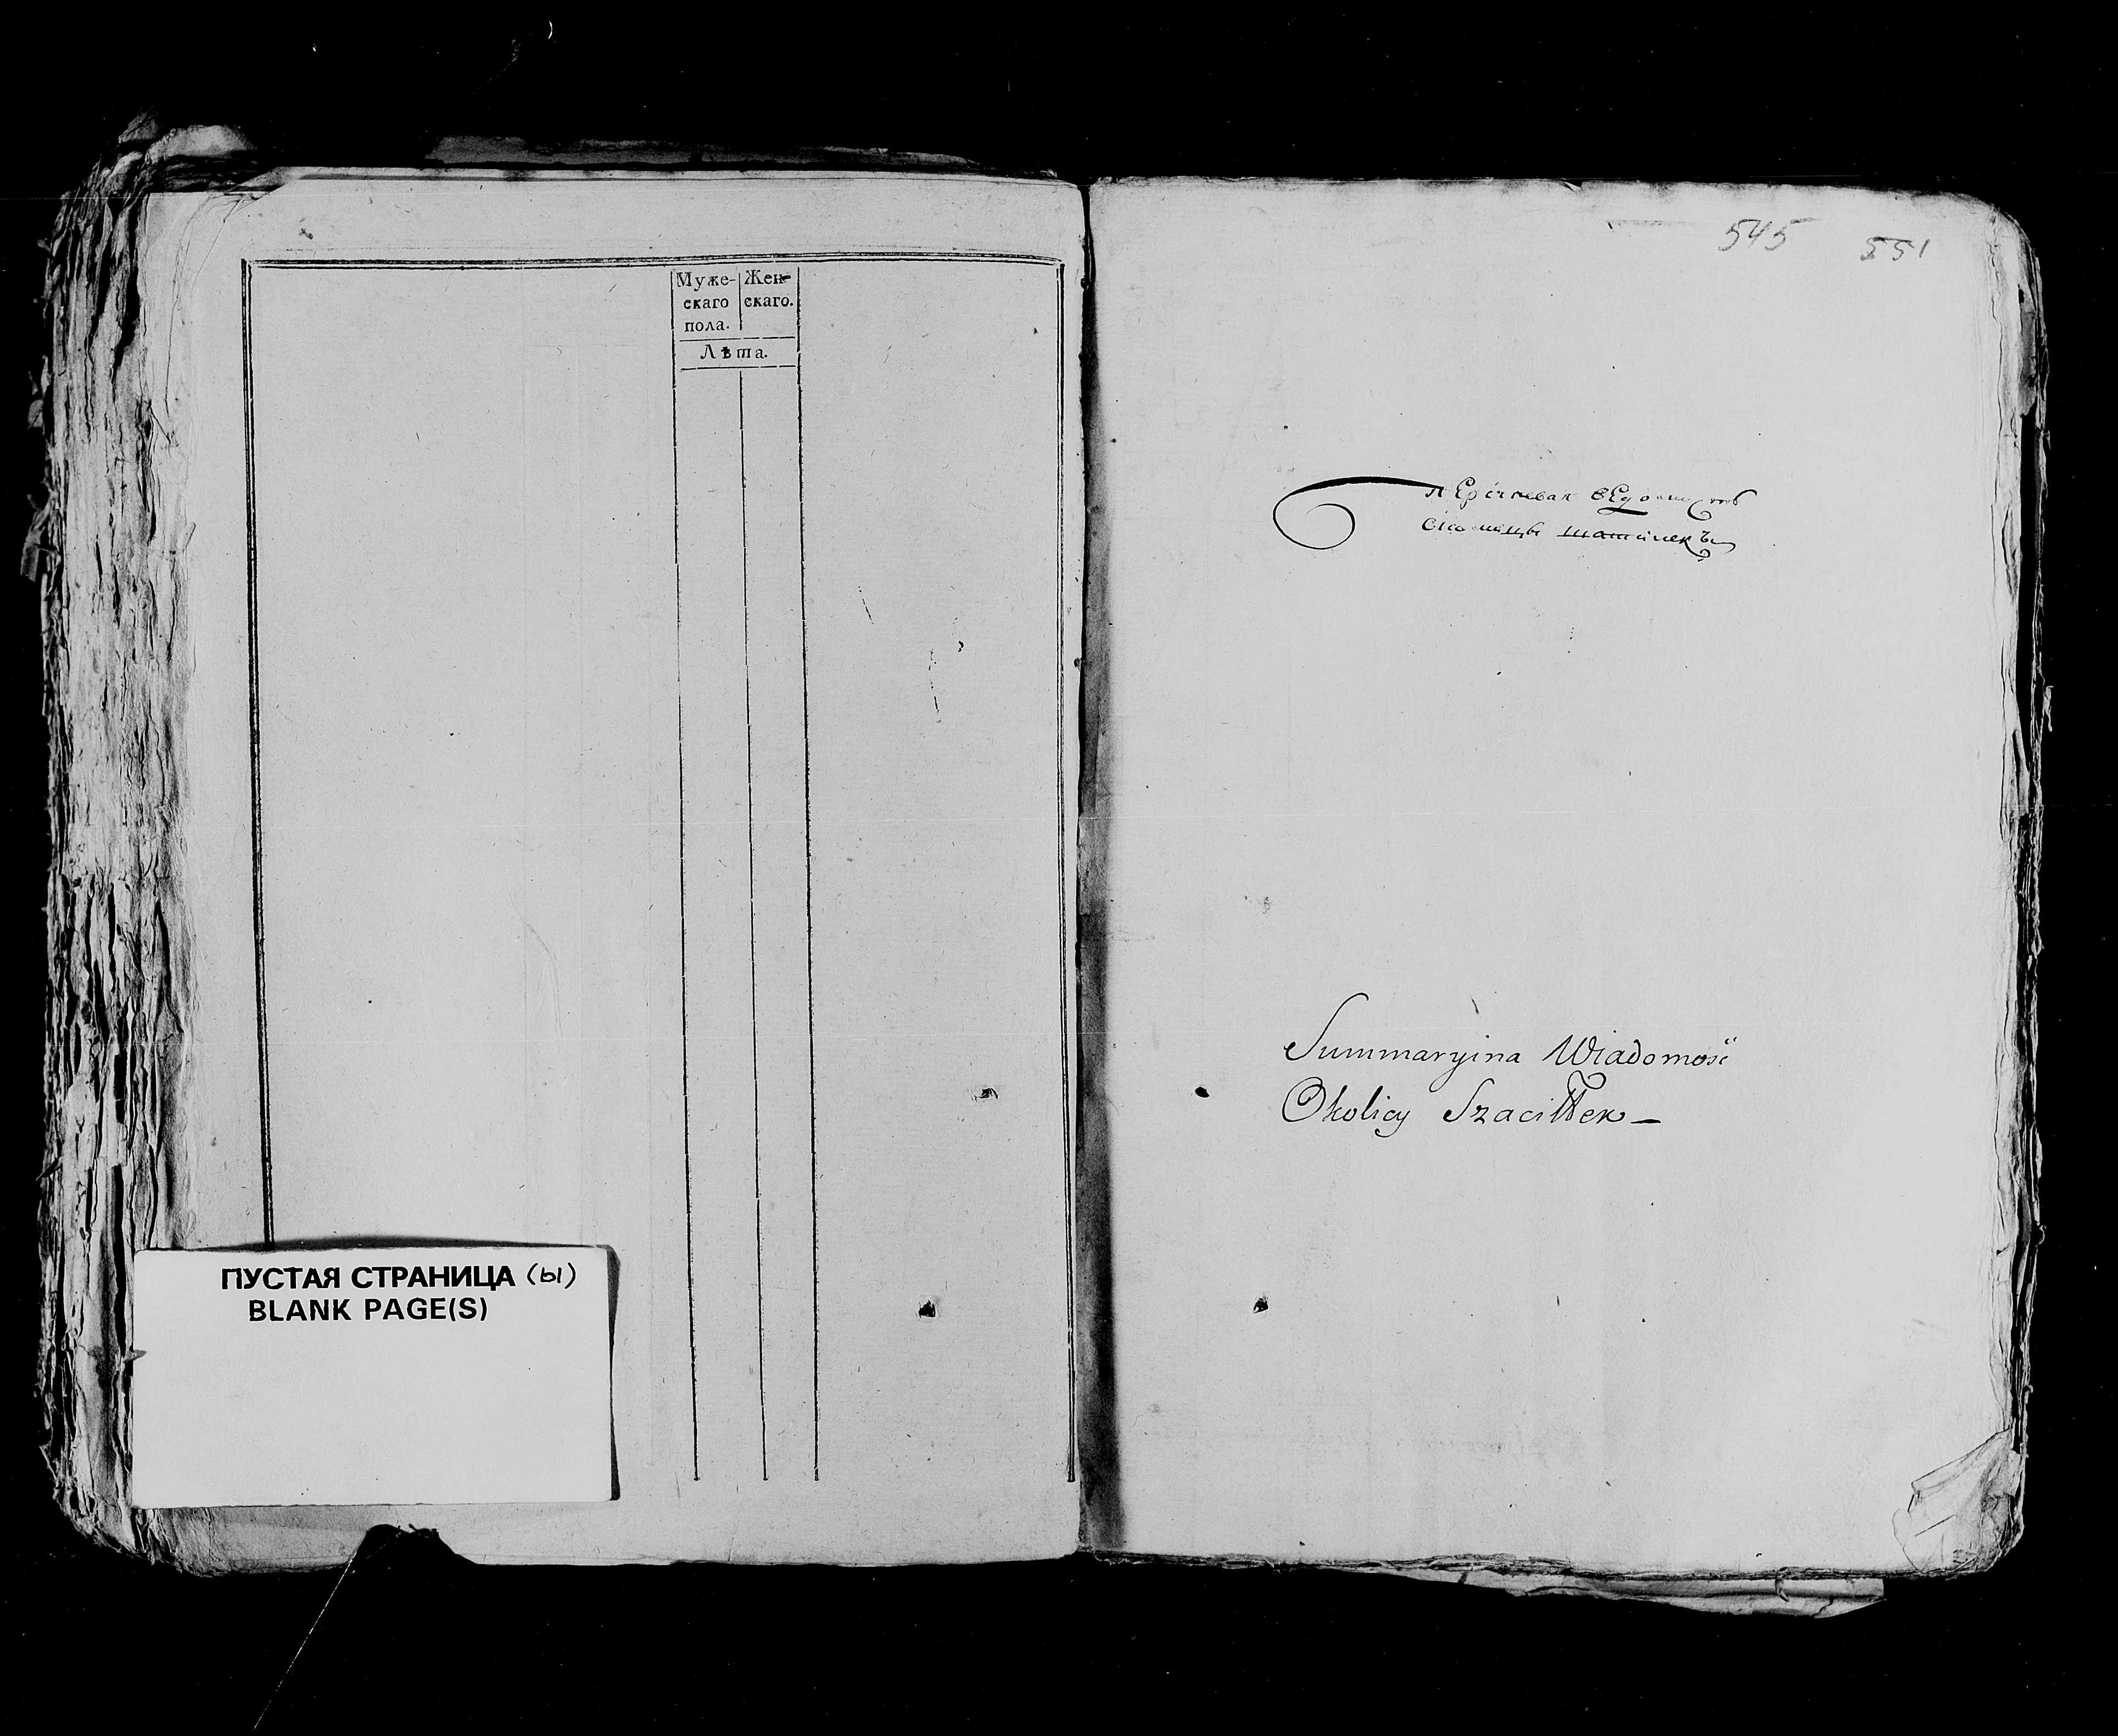 Муже-
скаго
пола.
Жен-
скаго.
Лѣта.
ПУСТАЯ СТРАНИЦА (ы)
BLANK PAGE(S)
545 551
перечневая ведомость
околицы шатилекъ
Summaryina Wiadomość
Okolicy Szaciłłek